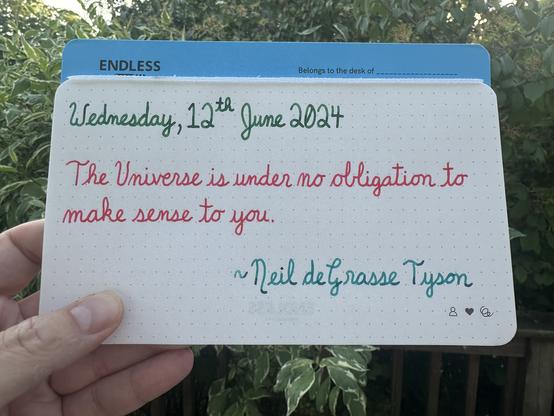 ENDLESS
Belongs to the desk of
Wednesday, 12th June 2024
The Universe is under no obligation to
make sense to you.
~Neil deGrasse Tyson